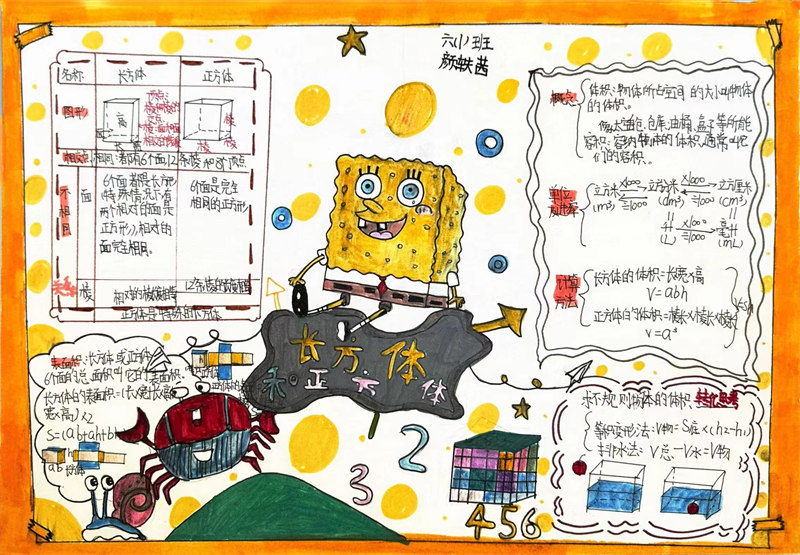 六(1)班
颜轶茜
名称 长方体 正方体
图形
高
棱
棱
相同点 相同:都有6个面,12条棱和8个顶点
不相同
面
6个面都是长方形
(特殊情况下有
两个相对的面是
正方形),相对的
面完全相同。
6个面是完全
相同的正方形
棱
相对的棱长度相等
12条棱的长度相等
关系
正方体是特殊的长方体
表面积:长方体或正方体
6个面的总面积叫它的表面积.
长方体的表面积=
宽×高)×2
S=(ab+ah+bh)
长方体
和正方体
概念
体积:物体所占空间的大小叫物体
的体积。
容积:容纳物体的体积,通常叫它
们的容积。
仓库、油桶、盒子等所能
单位
立方米 ×1000 ÷1000 立方分米 ×1000 ÷1000 立方厘米
(m³) (dm³) (cm³)
升 ×1000 ÷1000 毫升
(L) (mL)
计算
方法
长方体的体积=长×宽×高
V=abh
正方体的体积=棱长×棱长×棱长
V=a³
V=Sh
不规则物体的体积 转化思考
等积变形法:V物=S底×(h2-h1)
排水法:V总-V水=V物
2
3
456